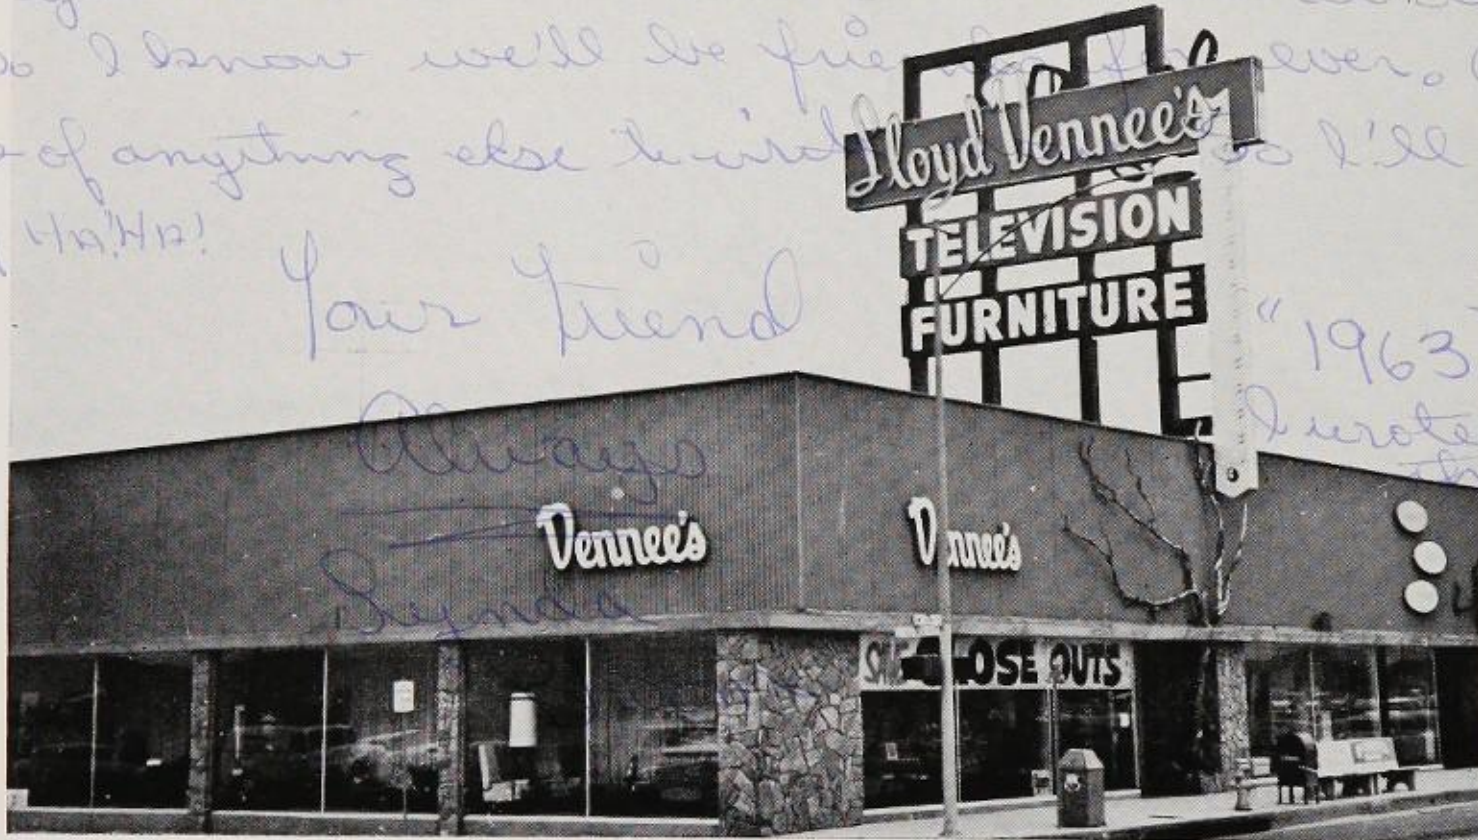 so I know we'll be friends for ever.
of anything else to so I'll
HA! HA!
Your Friend
Always
Lynda
"1963"
I wrote
Lloyd Vennee's
TELEVISION
FURNITURE
Vennee's
Vennee's
CLOSE OUTS